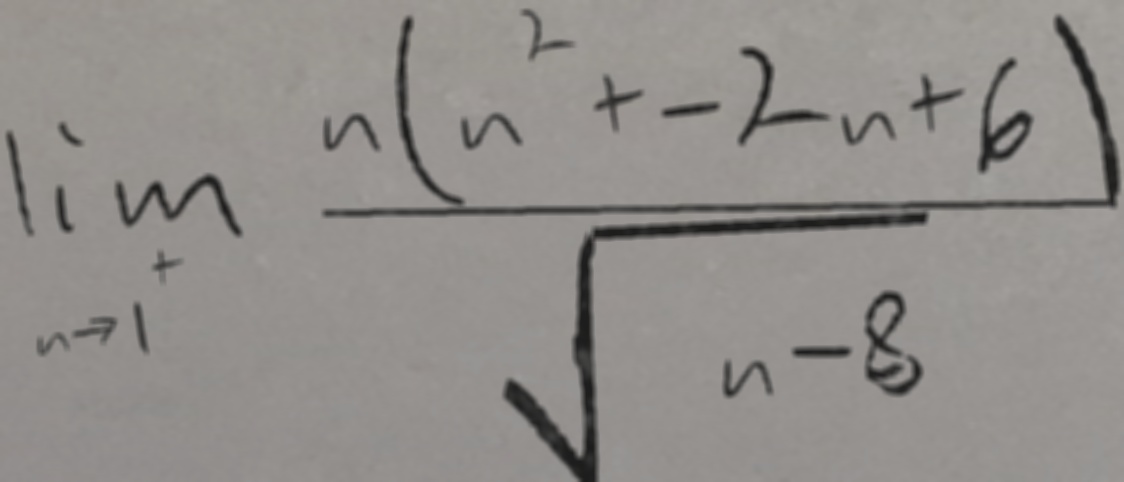 \lim_{n \to 1^+} \frac{n(n^2 + -2n + 6)}{\sqrt{n - 8}}